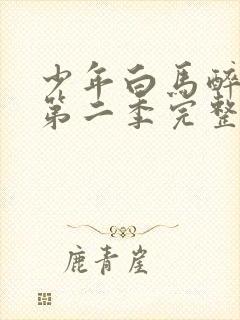 少年白马醉
第二季完整
鹿青崖